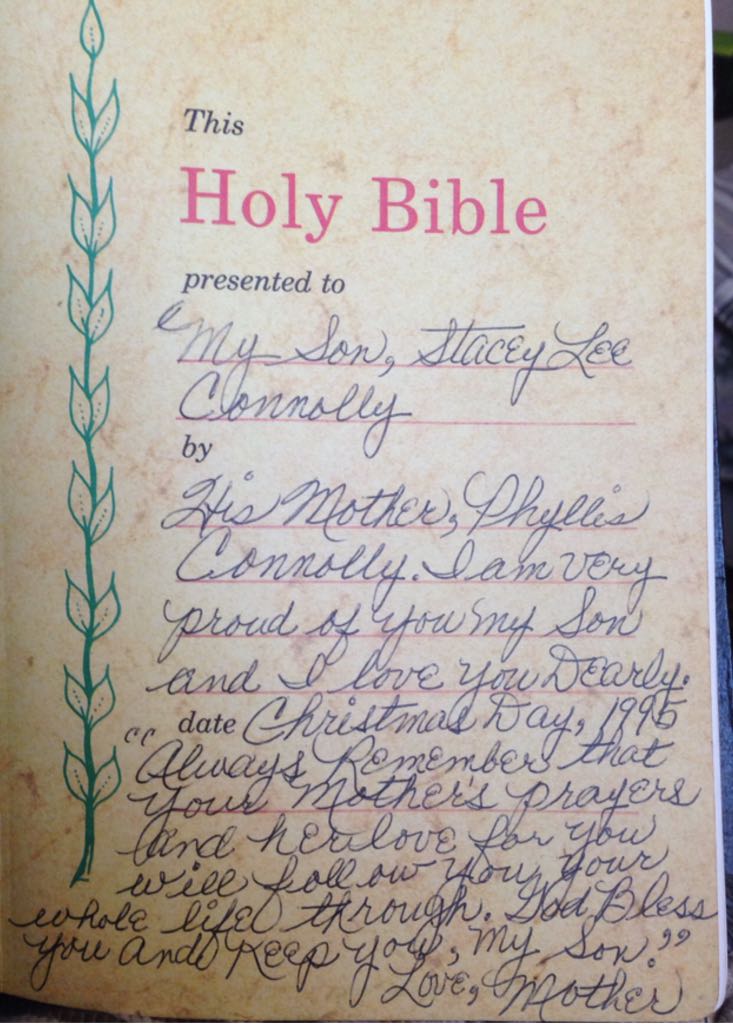 This
Holy Bible
presented to
"My Son, Stacey Lee
Connolly
by
His Mother, Phyllis
Connolly. I am very
proud of you my Son
and I love you Dearly.
date Christmas Day, 1995
"Always Remember that
your Mother's prayers
and her love for you
will follow you your
whole life through. God Bless
you and Keep you, My Son."
Love, Mother